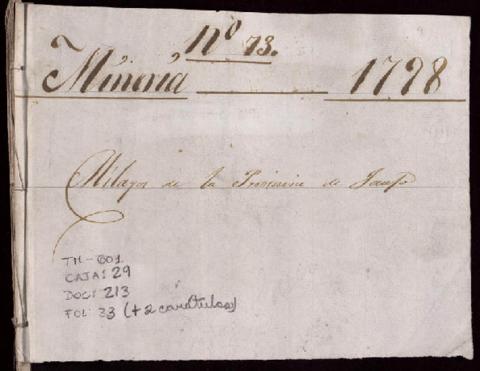 nº 73.
Minería 1798
Milagos de la Provincia de Jauja
TM-GO1
CAJA: 29
DOC: 213
FOL: 33 (+2 carátulas)